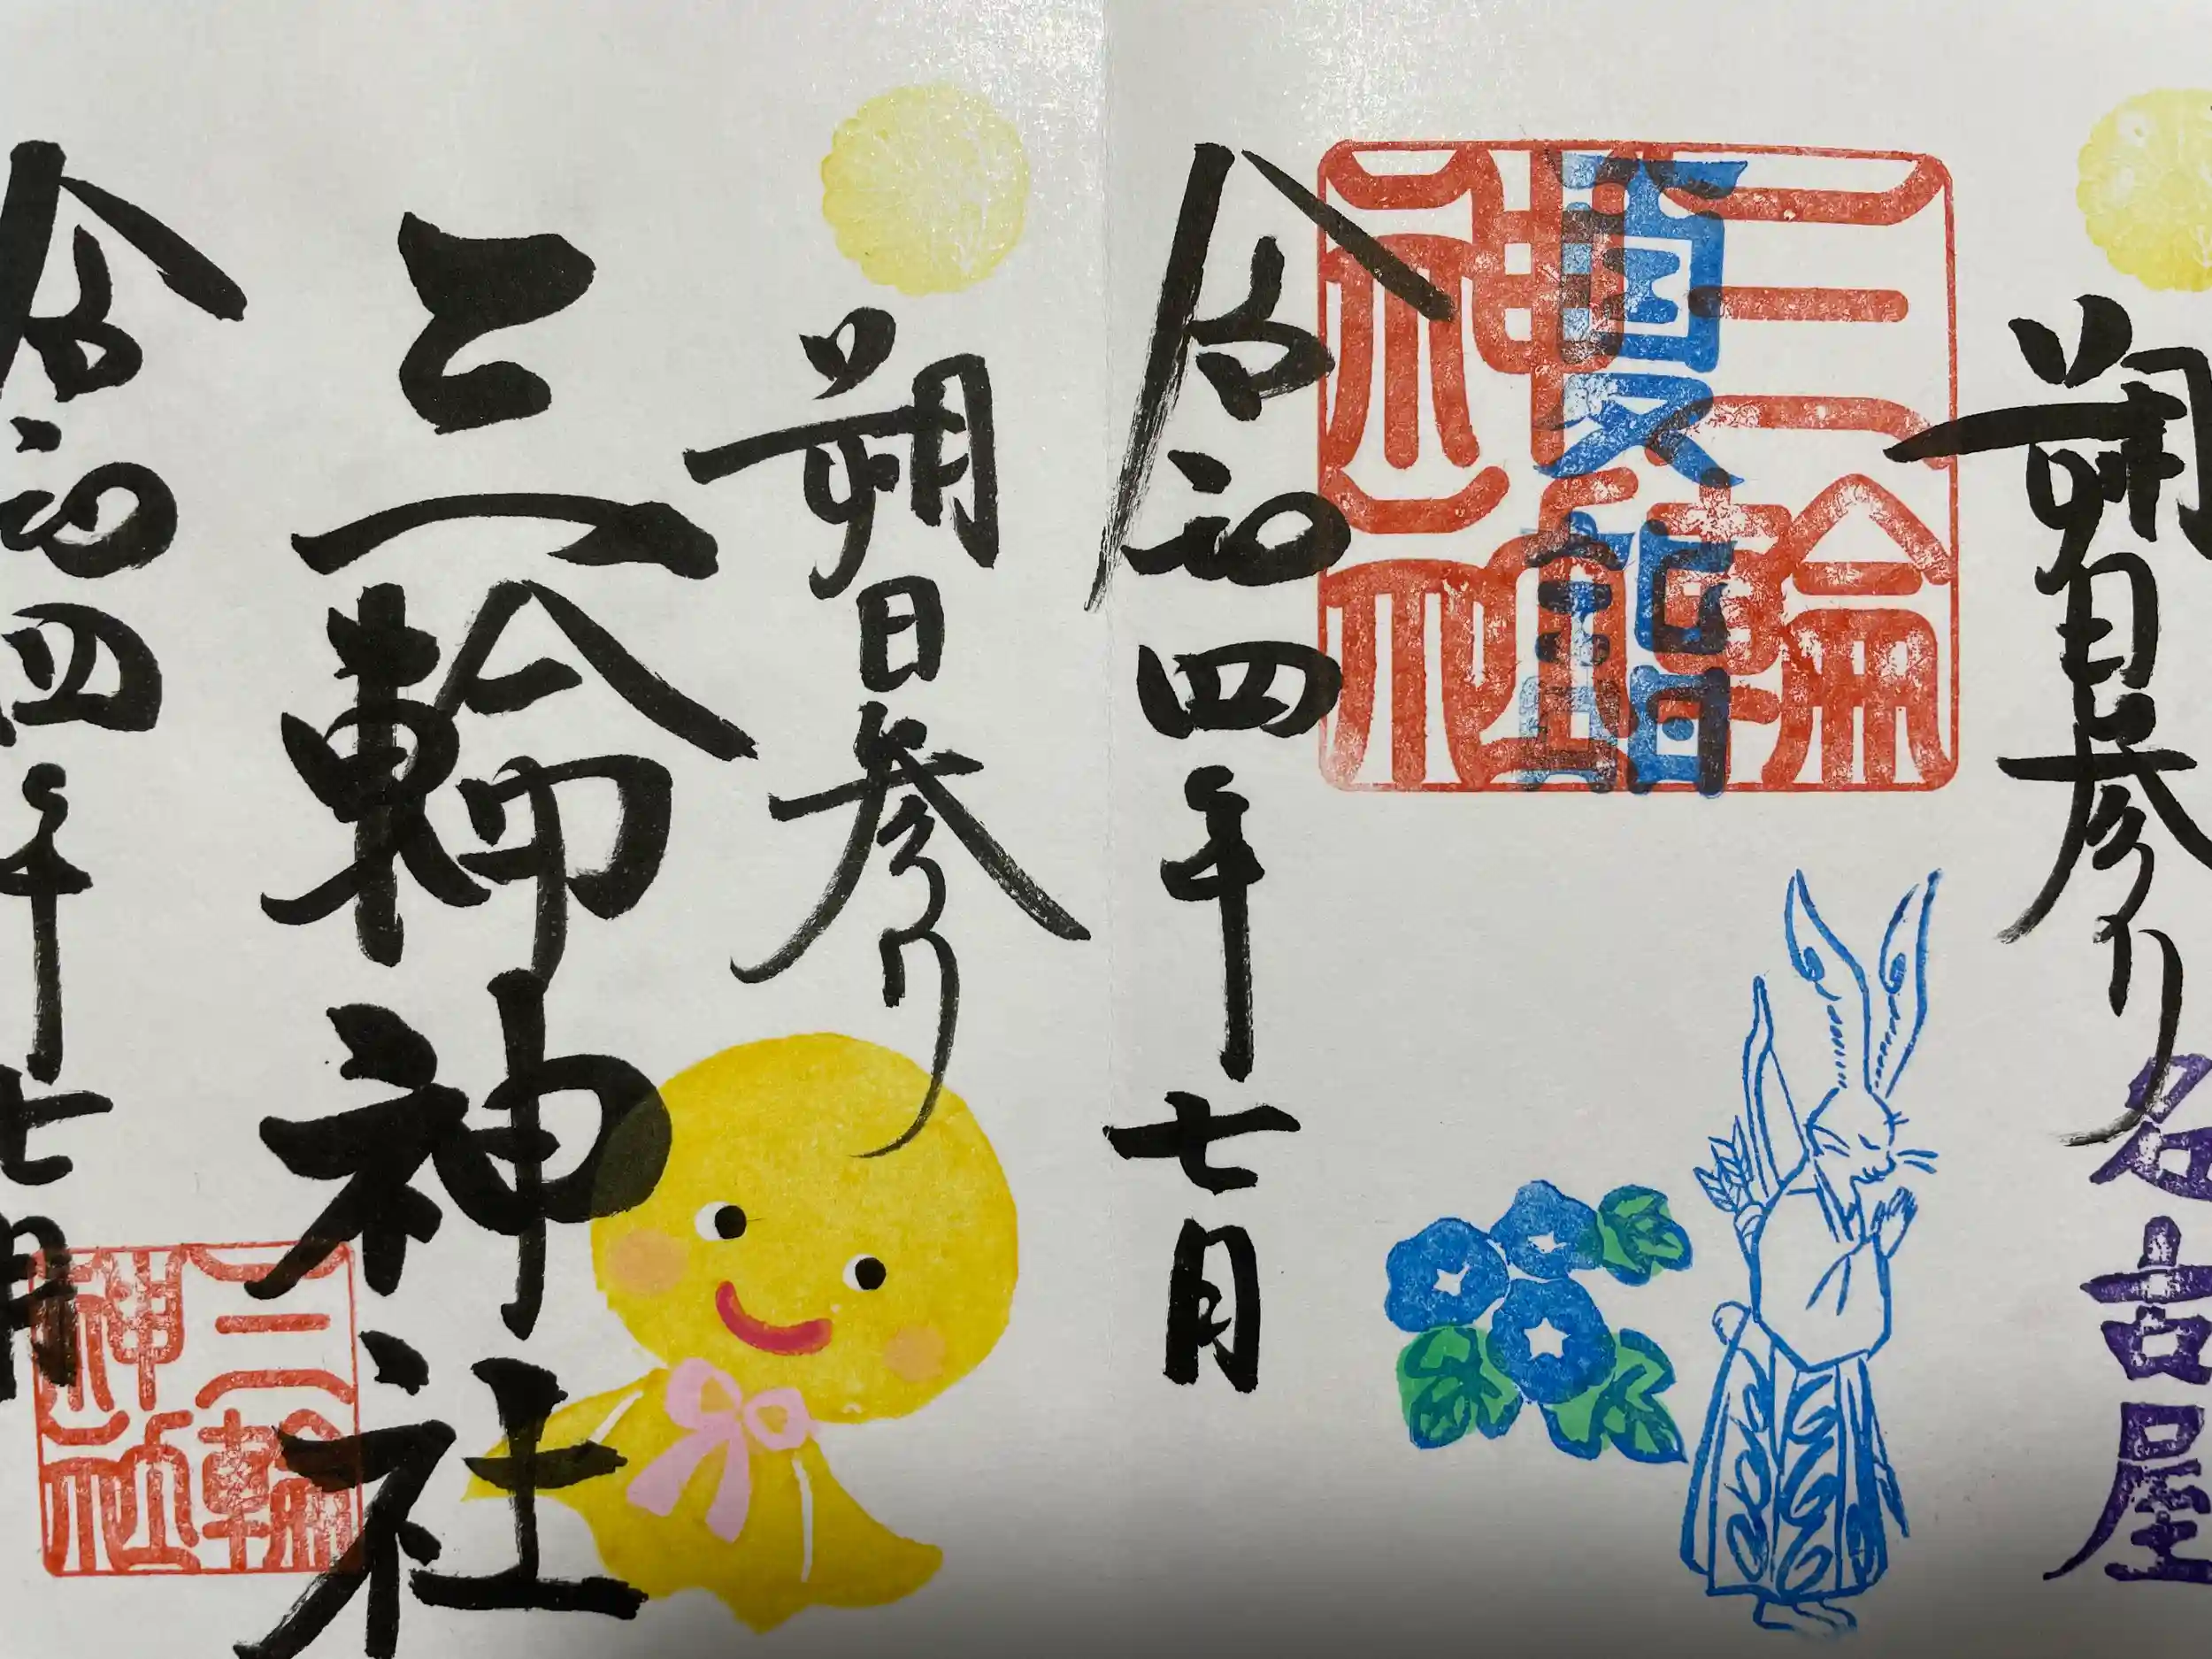 朔日参り
名古屋
三輪神社
夏詣
令和四年七月
朔日参り
三輪神社
三輪神社
令和四年七月